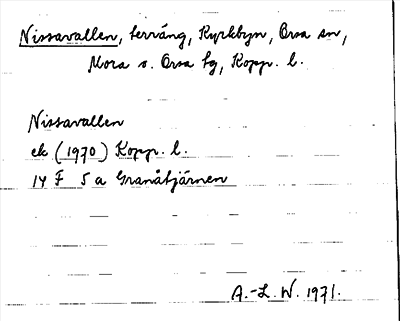 Nissavallen, terräng, Kyrkbyn, Orsa sn,
Mora o. Orsa tg, Kopp. l.
Nissavallen
ek (1970) Kopp. l.
14 F 5 a Granåtjärnen
A.-L. W. 1971.